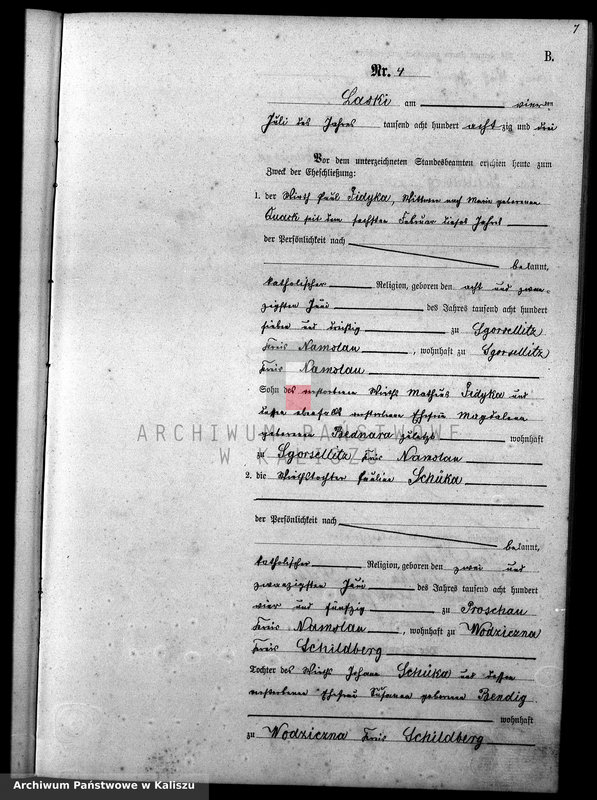 7
B.
Nr. 4
Laski am vierten
Juli des Jahres tausend acht hundert achtzig und drei
Vor dem unterzeichneten Standesbeamten erschien heute zum
Zweck der Eheschließung:
1. der Wirth Paul Zidyka, Wittwer nach Maria geborenen
Quack seit dem sechsten Februar dieses Jahres
der Persönlichkeit nach
bekannt,
katholischer Religion, geboren den acht und zwan-
zigsten Juni des Jahres tausend acht hundert
sieben und dreißig zu Sgorsellitz
Kreis Namslau, wohnhaft zu Sgorsellitz
Kreis Namslau
Sohn des verstorbenen Wirths Matheus Zidyka und
dessen ebenfalls verstorbenen Ehefrau Magdalena
geborenen Bednara zuletzt wohnhaft
zu Sgorsellitz Kreis Namslau
ARCHIWUM PAŃSTWOWE
W KALISZU
2. die Wirthstochter Pauline Schüka
der Persönlichkeit nach
bekannt,
katholischer Religion, geboren den zwei und
zwanzigsten Juni des Jahres tausend acht hundert
vier und fünfzig zu Proschau
Kreis Namslau, wohnhaft zu Wodziczna
Kreis Schildberg
Tochter des Wirths Johann Schüka und dessen
verstorbene Ehefrau Susanna geborene Bendig
wohnhaft
zu Wodziczna Kreis Schildberg
Archiwum Państwowe w Kaliszu